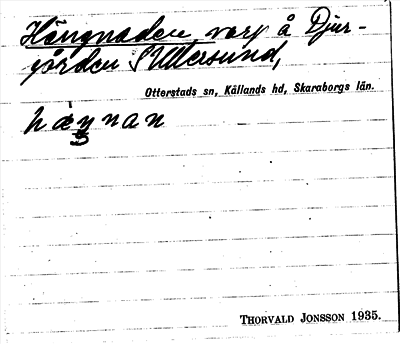 Hängnaden, varp å Djur-
fjorden S Ullersund,
Otterstads sn, Kållands hd, Skaraborgs län.
hæ̀ŋnan
3
THORVALD JONSSON 1935.